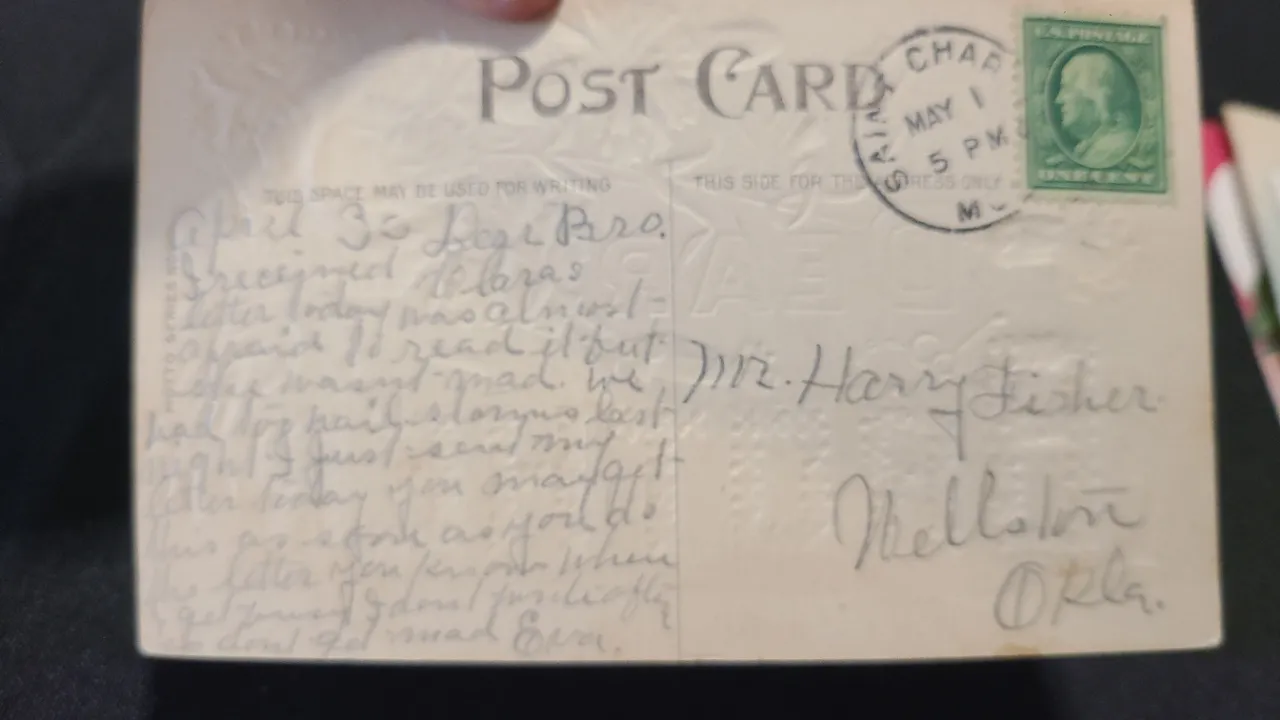 POST CARD
SAINT CHAR
MAY 1
5 PM
M
U.S. POSTAGE
ONE CENT
THIS SPACE MAY BE USED FOR WRITING
THIS SIDE FOR THE ADDRESS ONLY
April 30 Dear Bro.
I received Claras
letter today was almost
affraid to read it but
she wasnt mad. we
had two hail storms last
night I just sent my
letter today you may get
this as soon as you do
the letter you know when
I get I dont
so dont get mad
Mr. Harry Fisher.
Wellston
Okla.